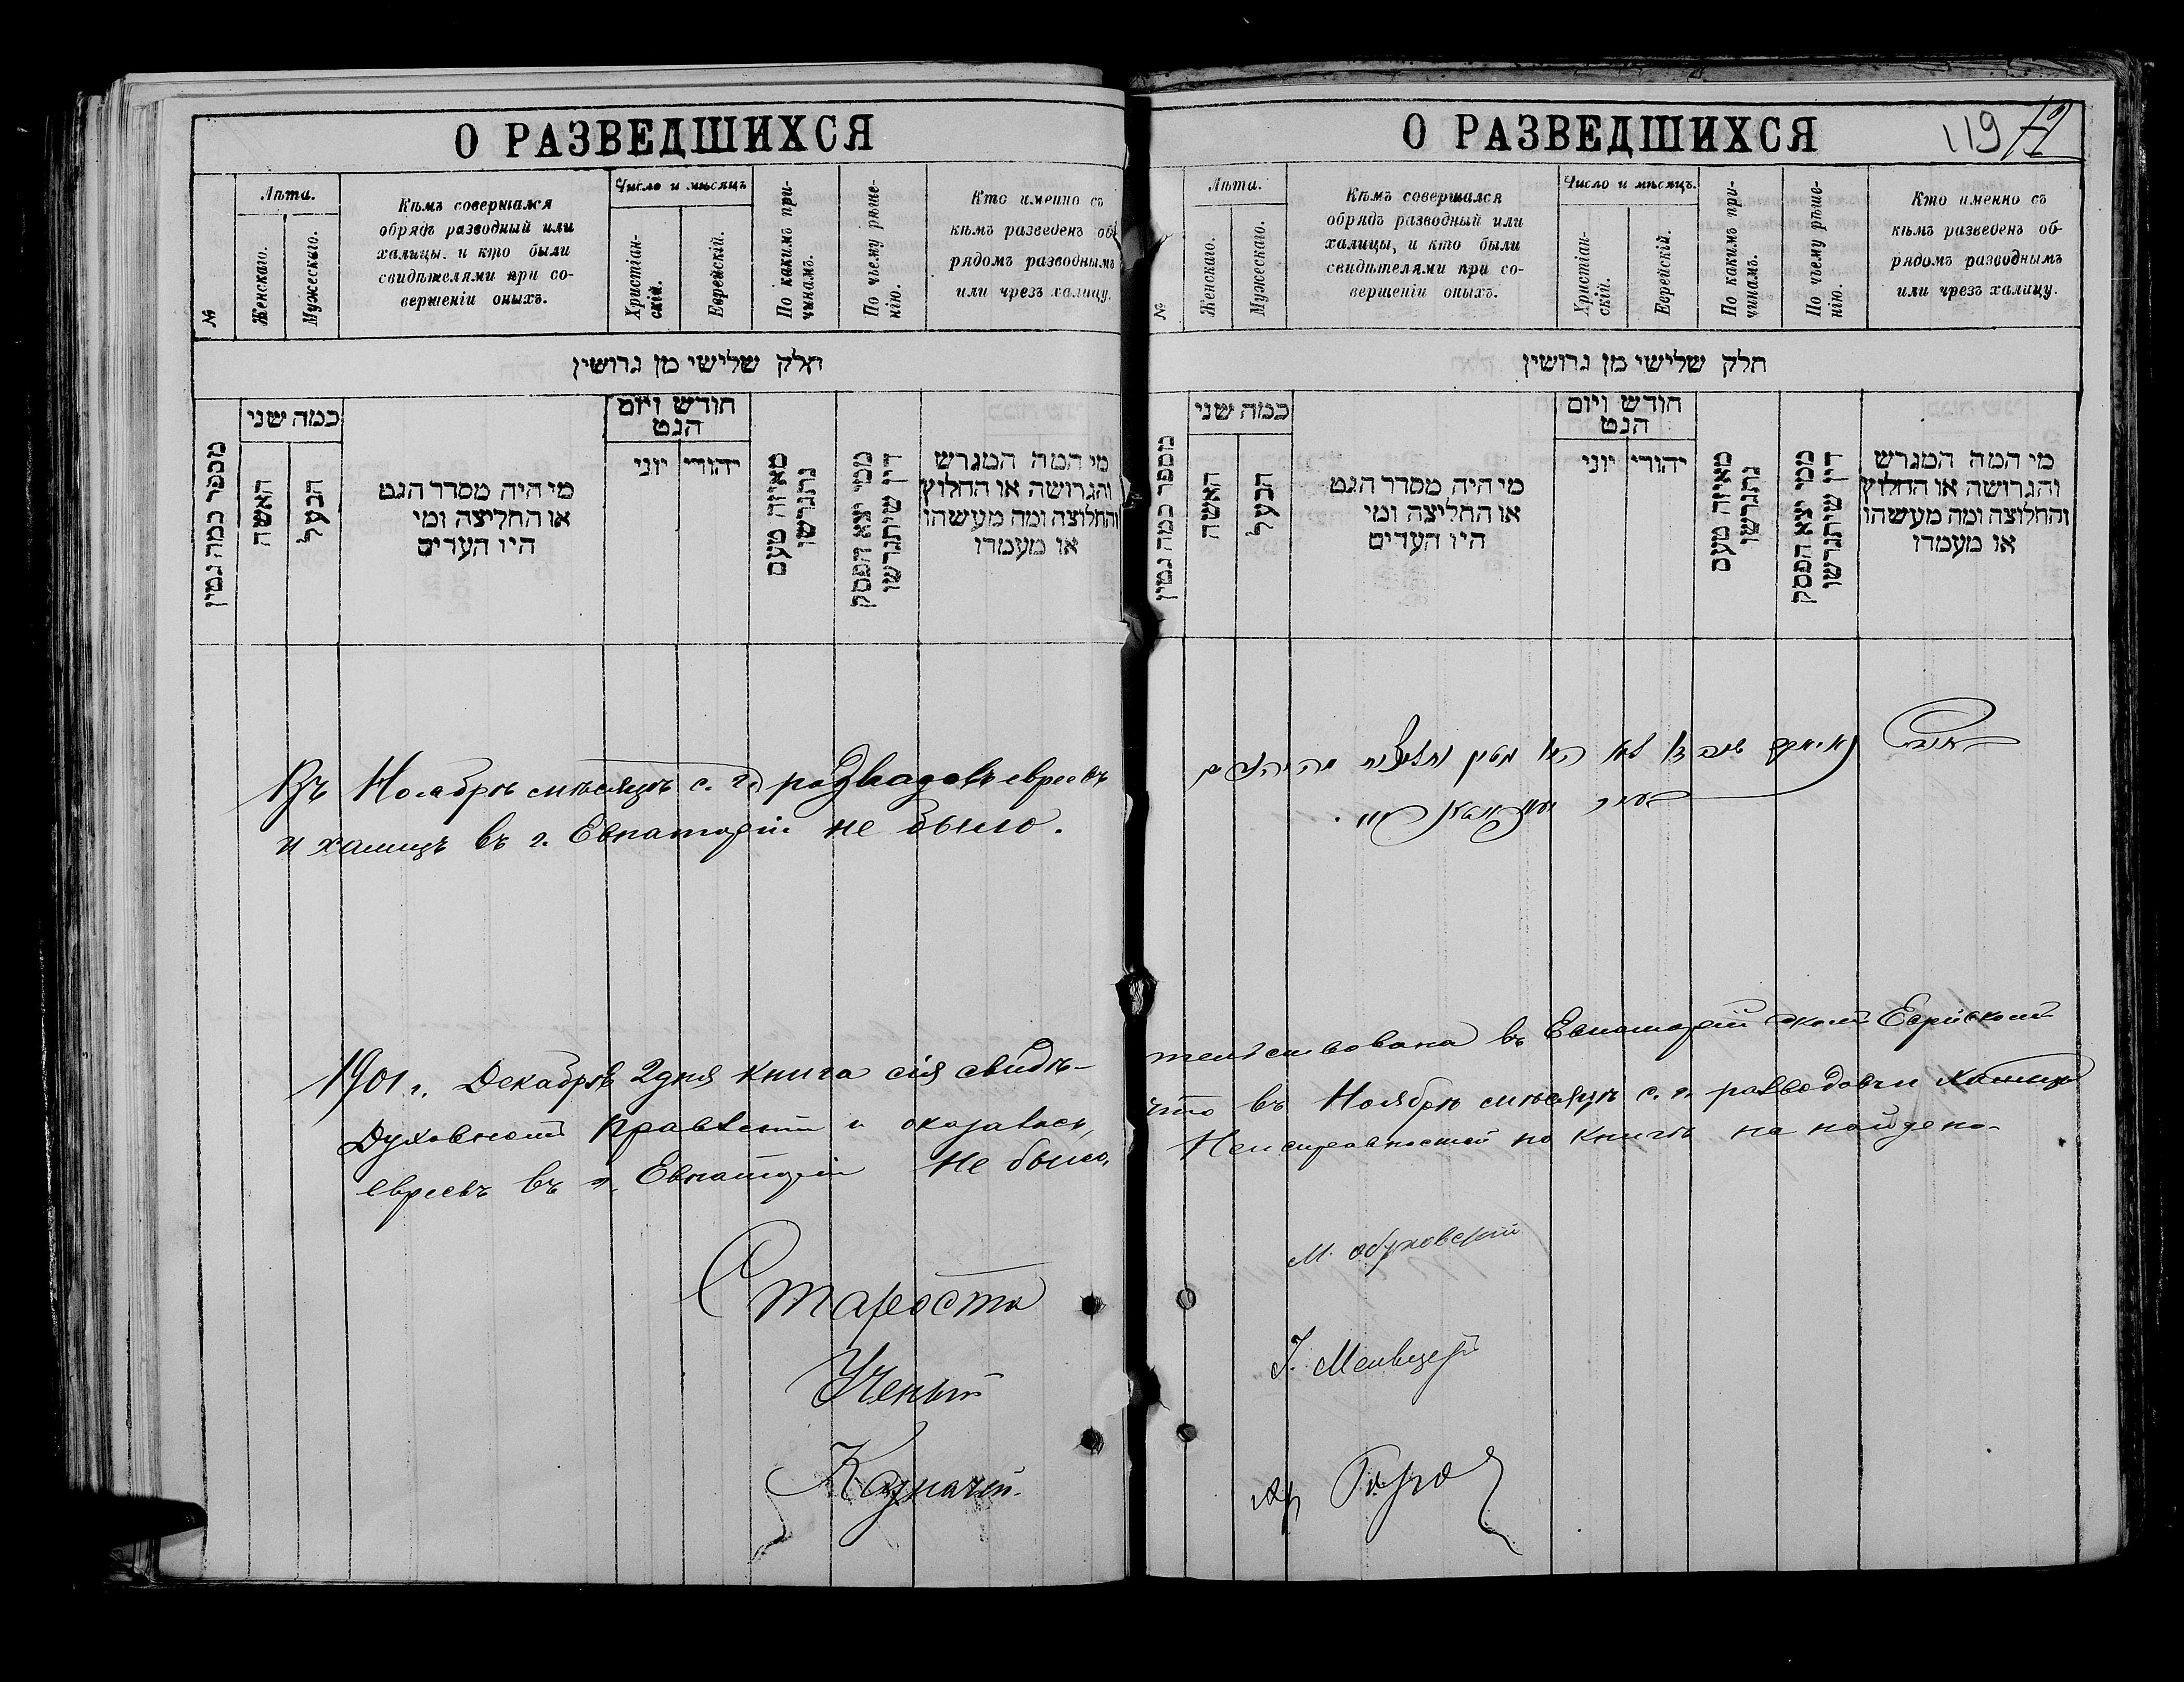 О РАЗВЕДШИХСЯ
№
Лѣта.
Женскаго.
Мужескаго.
Кѣмъ совершался
обрядъ разводный или
халицы, и кто были
свидѣтелями при со-
вершеніи оныхъ.
Число и мѣсяцъ
Христіан-
скій.
Еврейскій.
По какимъ при-
чинамъ.
По чьему рѣше-
нію.
Кто именно съ
кѣмъ разведенъ об-
рядомъ разводнымъ
или чрезъ халицу.
חלק שלישי מן גרושין
מספר כמה גטין
כמה שני
האשה
הבעל
מי היה מסדר הגט
או החליצה ומי
היו העדים
חודש ויום
הגט
יהודי
יוני
מאיזה טעם
נתגרשו
ממי יצא הפסק
דין שיתגרשו
מי המה המגרש
והגרושה או החלוץ
והחלוצה ומה מעשהו
או מעמדו
Въ Ноябрѣ мѣсяцѣ с. г. разводовъ евреевъ
и халицъ въ г. Евпаторіи не было.
1901 г. Декабря 2 дня книга сія свидѣ-
Духовномъ Правленіи и оказалось,
евреевъ въ г. Евпаторіи не было.
Староста
Ученый
Казначей.
О РАЗВЕДШИХСЯ
119
№
Лѣта.
Женскаго.
Мужескаго.
Кѣмъ совершался
обрядъ разводный или
халицы, и кто были
свидѣтелями при со-
вершеніи оныхъ.
Число и мѣсяцъ.
Христіан-
скій.
Еврейскій.
По какимъ при-
чинамъ.
По чьему рѣше-
нію.
Кто именно съ
кѣмъ разведенъ об-
рядомъ разводнымъ
или чрезъ халицу.
חלק שלישי מן גרושין
מספר כמה גטין
כמה שני
האשה
הבעל
מי היה מסדר הגט
או החליצה ומי
היו העדים
חודש ויום
הגט
יהודי
יוני
מאיזה טעם
נתגרשו
ממי יצא הפסק
דין שיתגרשו
מי המה המגרש
והגרושה או החלוץ
והחלוצה ומה מעשהו
או מעמדו
тельствована въ Евпаторійскомъ Еврейскомъ
что въ Ноябрѣ мѣсяцѣ с. г. разводовъ и халицъ
Неисправностей по книгѣ не найдено.
М.